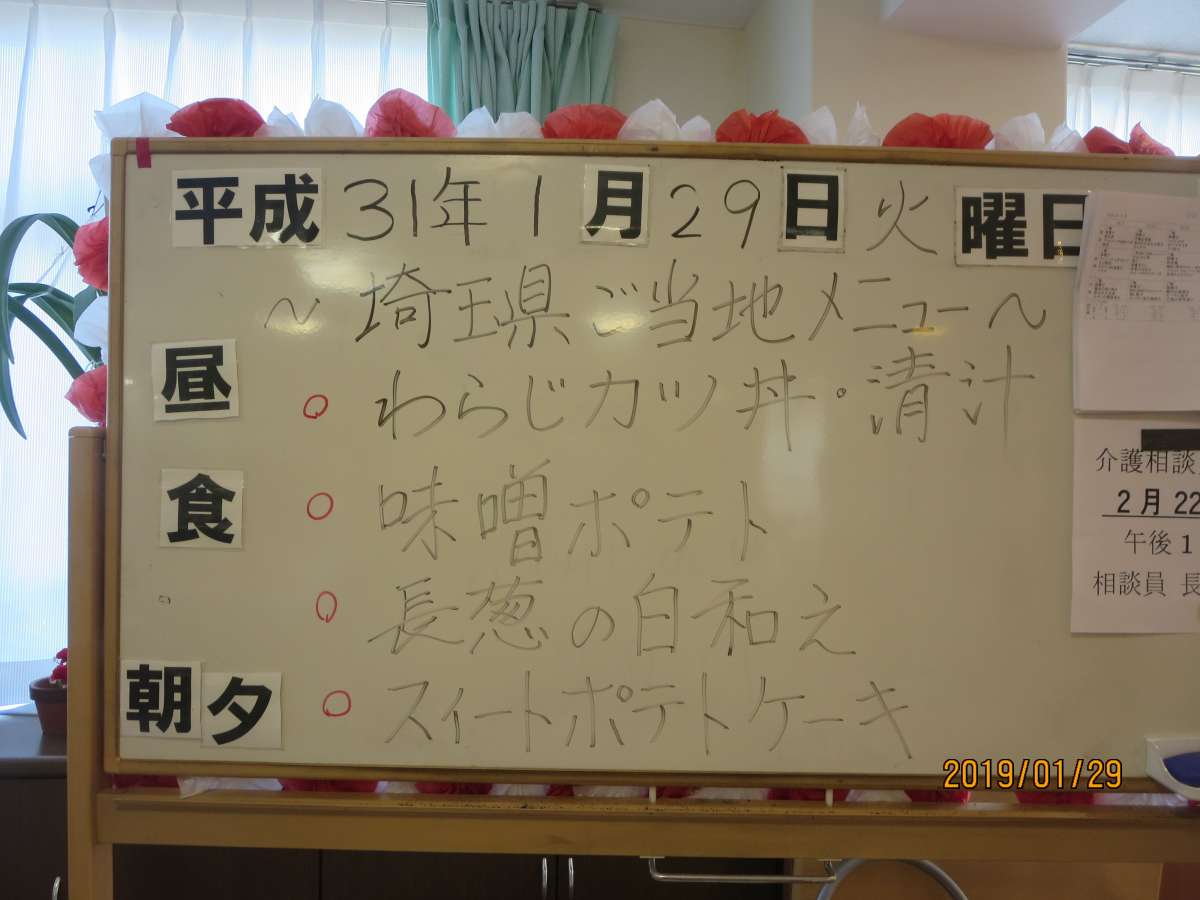 平成31年1月29日 火曜日
～埼玉県ご当地メニュー～
昼食
○わらじカツ丼・清汁
○味噌ポテト
○長葱の白和え
朝夕
○スィートポテトケーキ
介護相談
2月22
午後1
相談員 長
2019/01/29